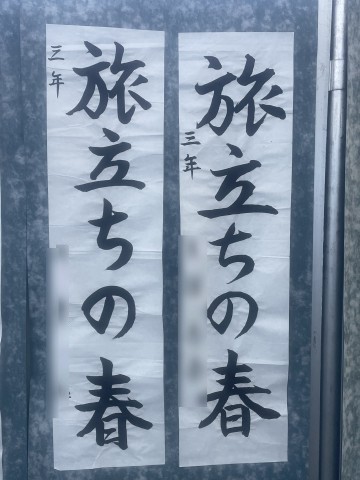 旅立ちの春
三年
旅立ちの春
三年